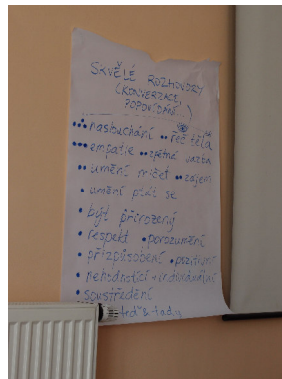 SKVĚLÉ ROZHOVORY
(KONVERZACE,
POPOVÍDÁNÍ...)
naslouchání •• řeč těla
empatie •• zpětná vazba
umění mlčet •• zájem
• umění ptát se
• být přirozený
• respekt • porozumění
• přizpůsobení • pozitivní
• nehodnotící • individuální
• soustředění